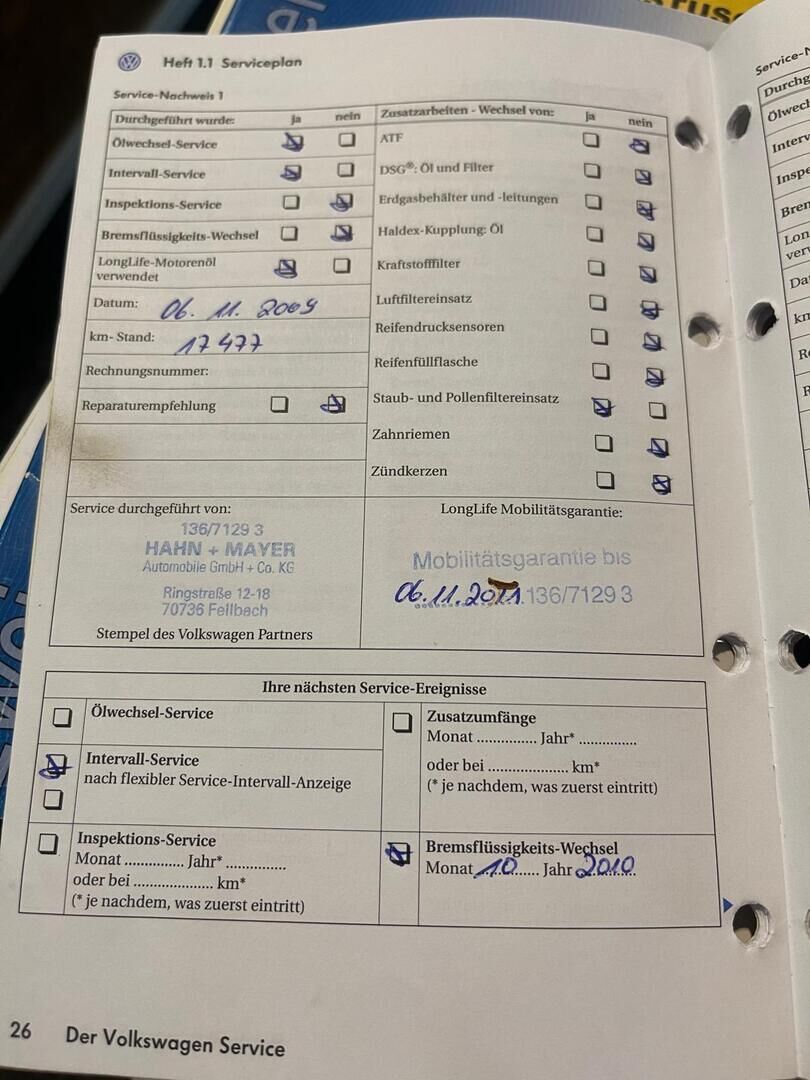 Heft 1.1 Serviceplan
Service-Nachweis 1
Durchgeführt wurde: ja nein
Ölwechsel-Service
Intervall-Service
Inspektions-Service
Bremsflüssigkeits-Wechsel
LongLife-Motorenöl
verwendet
Datum: 06. 11. 2009
km- Stand: 17 477
Rechnungsnummer:
Reparaturempfehlung
Zusatzarbeiten - Wechsel von: ja nein
ATF
DSG®: Öl und Filter
Erdgasbehälter und -leitungen
Haldex-Kupplung: Öl
Kraftstofffilter
Luftfiltereinsatz
Reifendrucksensoren
Reifenfüllflasche
Staub- und Pollenfiltereinsatz
Zahnriemen
Zündkerzen
Service durchgeführt von:
136/7129 3
HAHN + MAYER
Automobile GmbH + Co. KG
Ringstraße 12-18
70736 Fellbach
Stempel des Volkswagen Partners
LongLife Mobilitätsgarantie:
Mobilitätsgarantie bis
06.11.2011 136/7129 3
Ihre nächsten Service-Ereignisse
Ölwechsel-Service
Intervall-Service
nach flexibler Service-Intervall-Anzeige
Inspektions-Service
Monat ............... Jahr* ...............
oder bei .................... km*
(* je nachdem, was zuerst eintritt)
Zusatzumfänge
Monat ............... Jahr* ...............
oder bei .................... km*
(* je nachdem, was zuerst eintritt)
Bremsflüssigkeits-Wechsel
Monat 10 Jahr 2010
26 Der Volkswagen Service